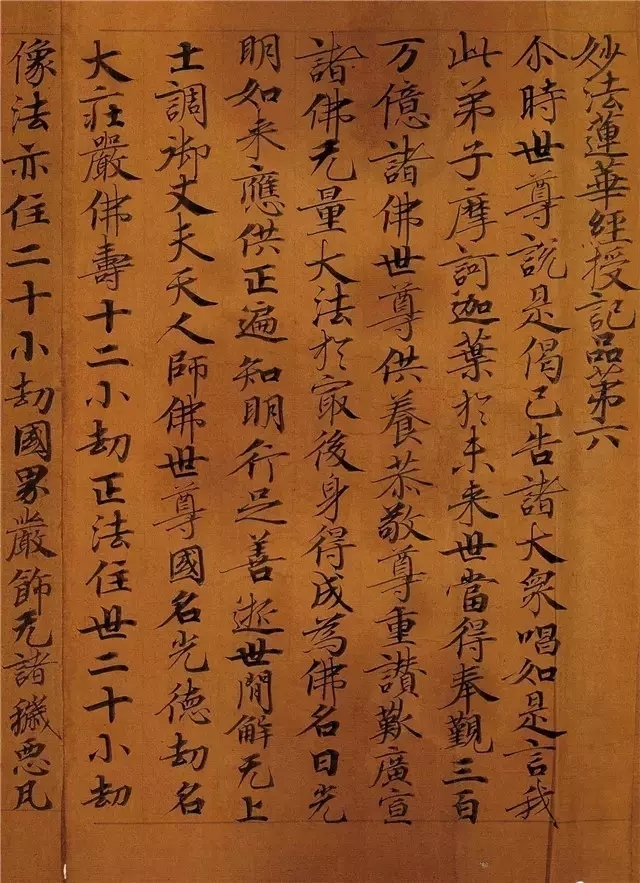 妙法蓮華經授記品第六
尒時世尊說是偈已告諸大眾唱如是言我
此弟子摩訶迦葉於未来世當得奉覲三百
万億諸佛世尊供養恭敬尊重讚歎廣宣
諸佛无量大法於㝡後身得成為佛名曰光
明如来應供正遍知明行足善逝世間解无上
士調御丈夫天人師佛世尊國名光德劫名
大莊嚴佛壽十二小劫正法住世二十小劫
像法亦住二十小劫國界嚴飾无諸穢惡瓦